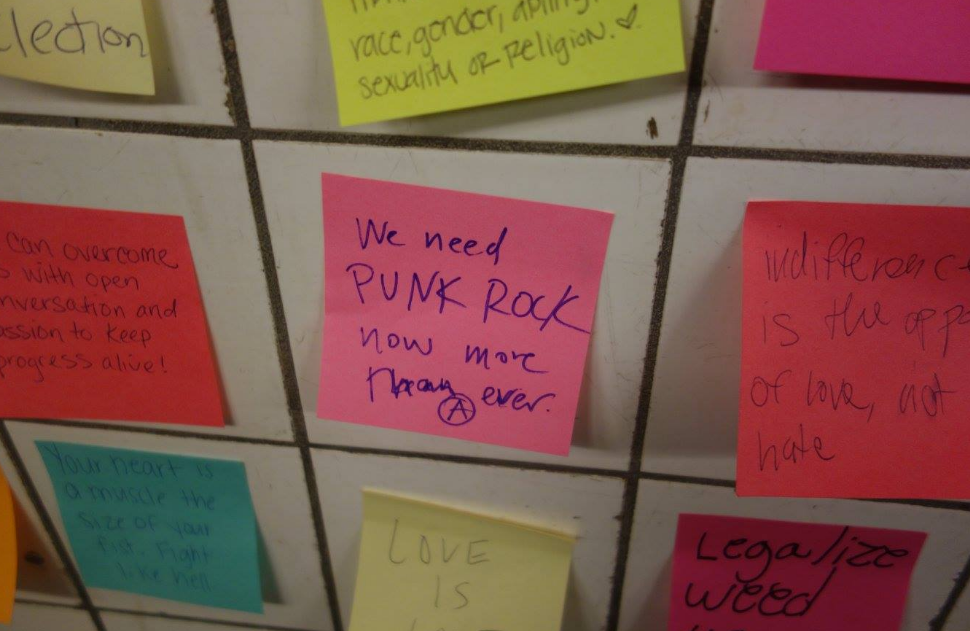 lection
race, gender, ability,
sexuality or Religion.
can overcome
with open
nversation and
assion to keep
progress alive!
We need
PUNK ROCK
now more
than ever.
A
indifferenc
is the oppo
of love, not
hate
Your heart is
a muscle the
size of your
fist. Fight
like hell
LOVE
IS
Legalize
weed